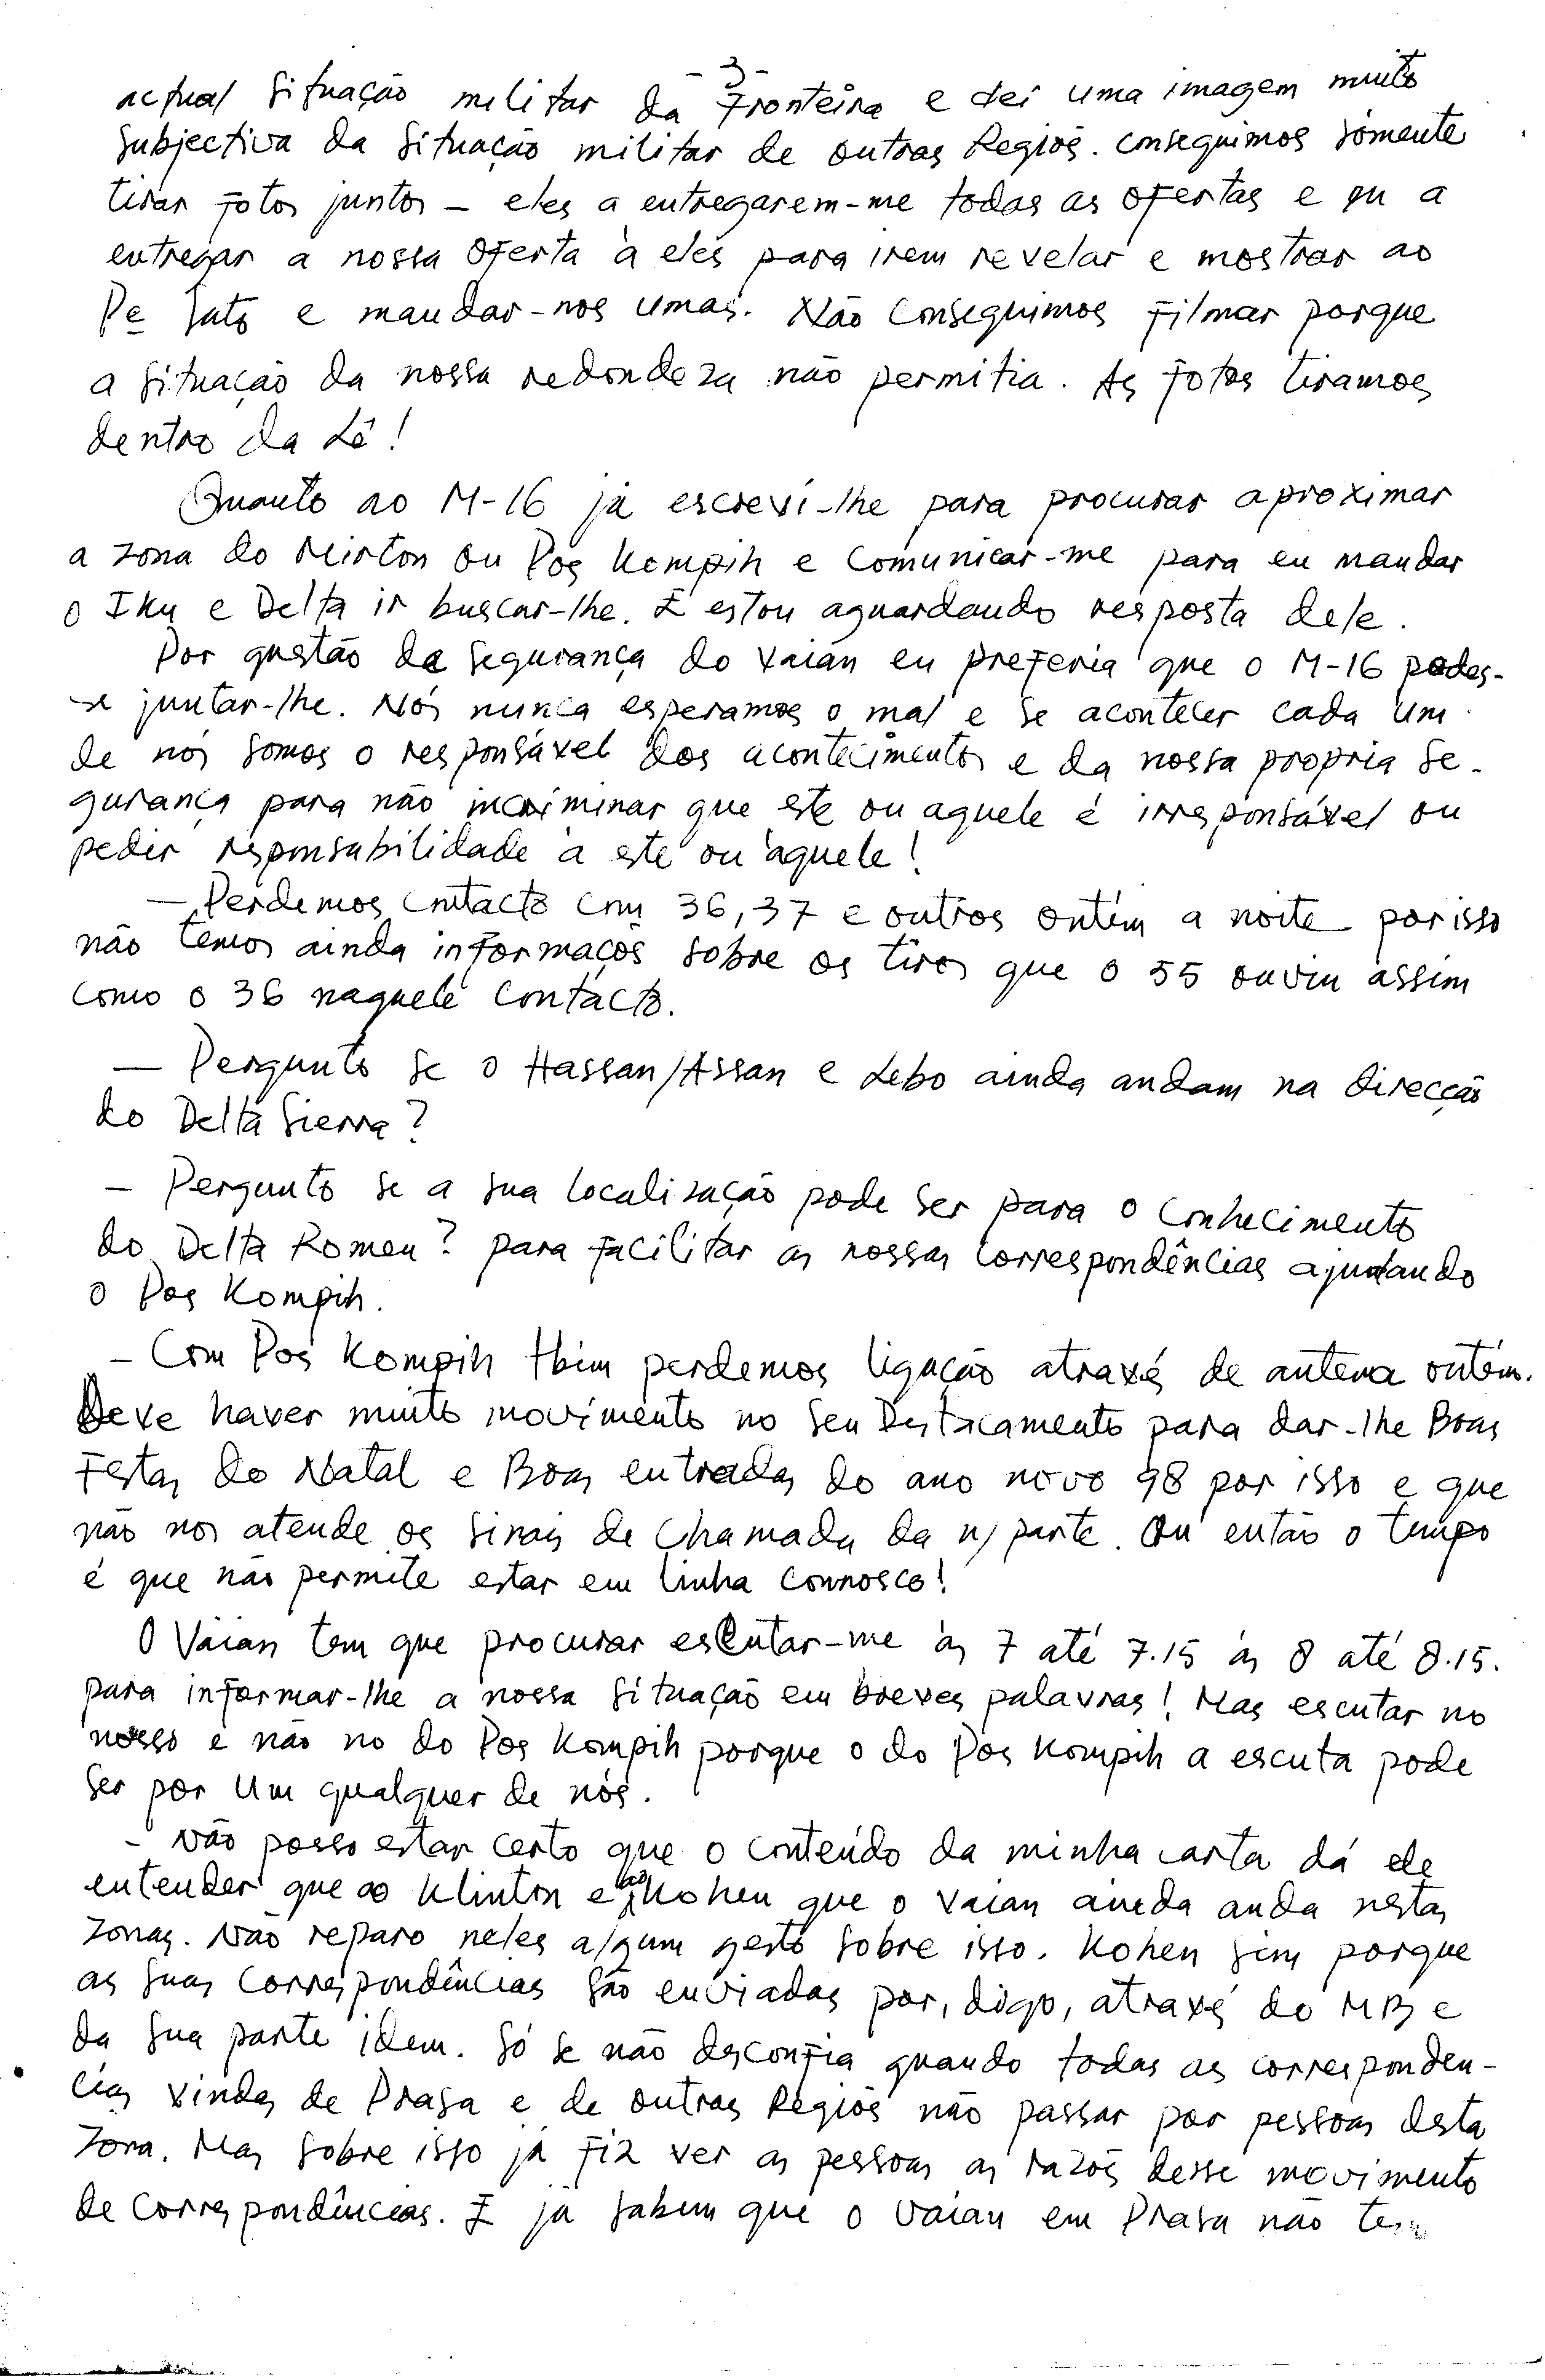 - 3 -
actual situação militar da Fronteira e dei uma imagem muito
subjectiva da situação militar de outras Regiõs. conseguimos sòmente
tirar fotos juntos – eles a entregarem-me todas as ofertas e eu a
entregar a nossa oferta à eles para irem revelar e mostrar ao
Pe Sato e mandar-nos umas. Não conseguimos filmar porque
a situação da nossa redondeza não permitia. As fotos tiramos
dentro da Lê!
Quanto ao M-16 já escrevi-lhe para procurar aproximar
a zona do Mirton ou Pos Kompih e comunicar-me para eu mandar
o Iku e Delta ir buscar-lhe. E estou aguardando resposta dele.
Por questão de segurança do Vaian eu preferia que o M-16 podes-
se juntar-lhe. Nós nunca esperamos o mal e se acontecer cada um
de nós somos o responsável dos acontecimentos e da nossa propria se-
gurança para não incriminar que este ou aquele é irresponsável ou
pedir responsabilidade à este ou àquele!
— Perdemos contacto com 36, 37 e outros ontém a noite por isso
não temos ainda informaçõs sobre os tiros que o 55 ouviu assim
como o 36 naquele contacto.
— Pergunto se o Hassan/Assan e Lebo ainda andam na direcção
do Delta Sierra?
– Pergunto se a sua localização pode ser para o conhecimento
do Delta Romeu? para facilitar as nossas correspondências ajudando
o Pos Kompih.
– Com Pos Kompih tbém perdemos ligação através de antena ontém.
Deve haver muito movimento no seu Destacamento para dar-lhe Boas
Festas do Natal e Boas entradas do ano novo 98 por isso e que
não nos atende os sinais de chamada da n/parte. Ou então o tempo
é que não permite estar em linha connosco!
O Vaian tem que procurar escutar-me às 7 até 7.15 às 8 até 8.15.
para informar-lhe a nossa situação em breves palavras! Mas escutar no
nosso e não no do Pos Kompih porque o do Pos Kompih a escuta pode
ser por um qualquer de nós.
- Não posso estar certo que o conteúdo da minha carta dá de
entender que ao Klinton e ao Kohen que o Vaian ainda anda nestas
zonas. Não reparo neles algum gesto sobre isso. Kohen sim porque
as suas correspondências são enviadas por, digo, através do MB e
da sua parte idem. Só se não desconfia quando todas as corresponden-
cias vindas de Prasa e de outras Regiõs não passar por pessoas desta
zona. Mas sobre isso já fiz ver as pessoas as razõs desse movimento
de correspondências. E já sabem que o Vaian em Prasa não tem